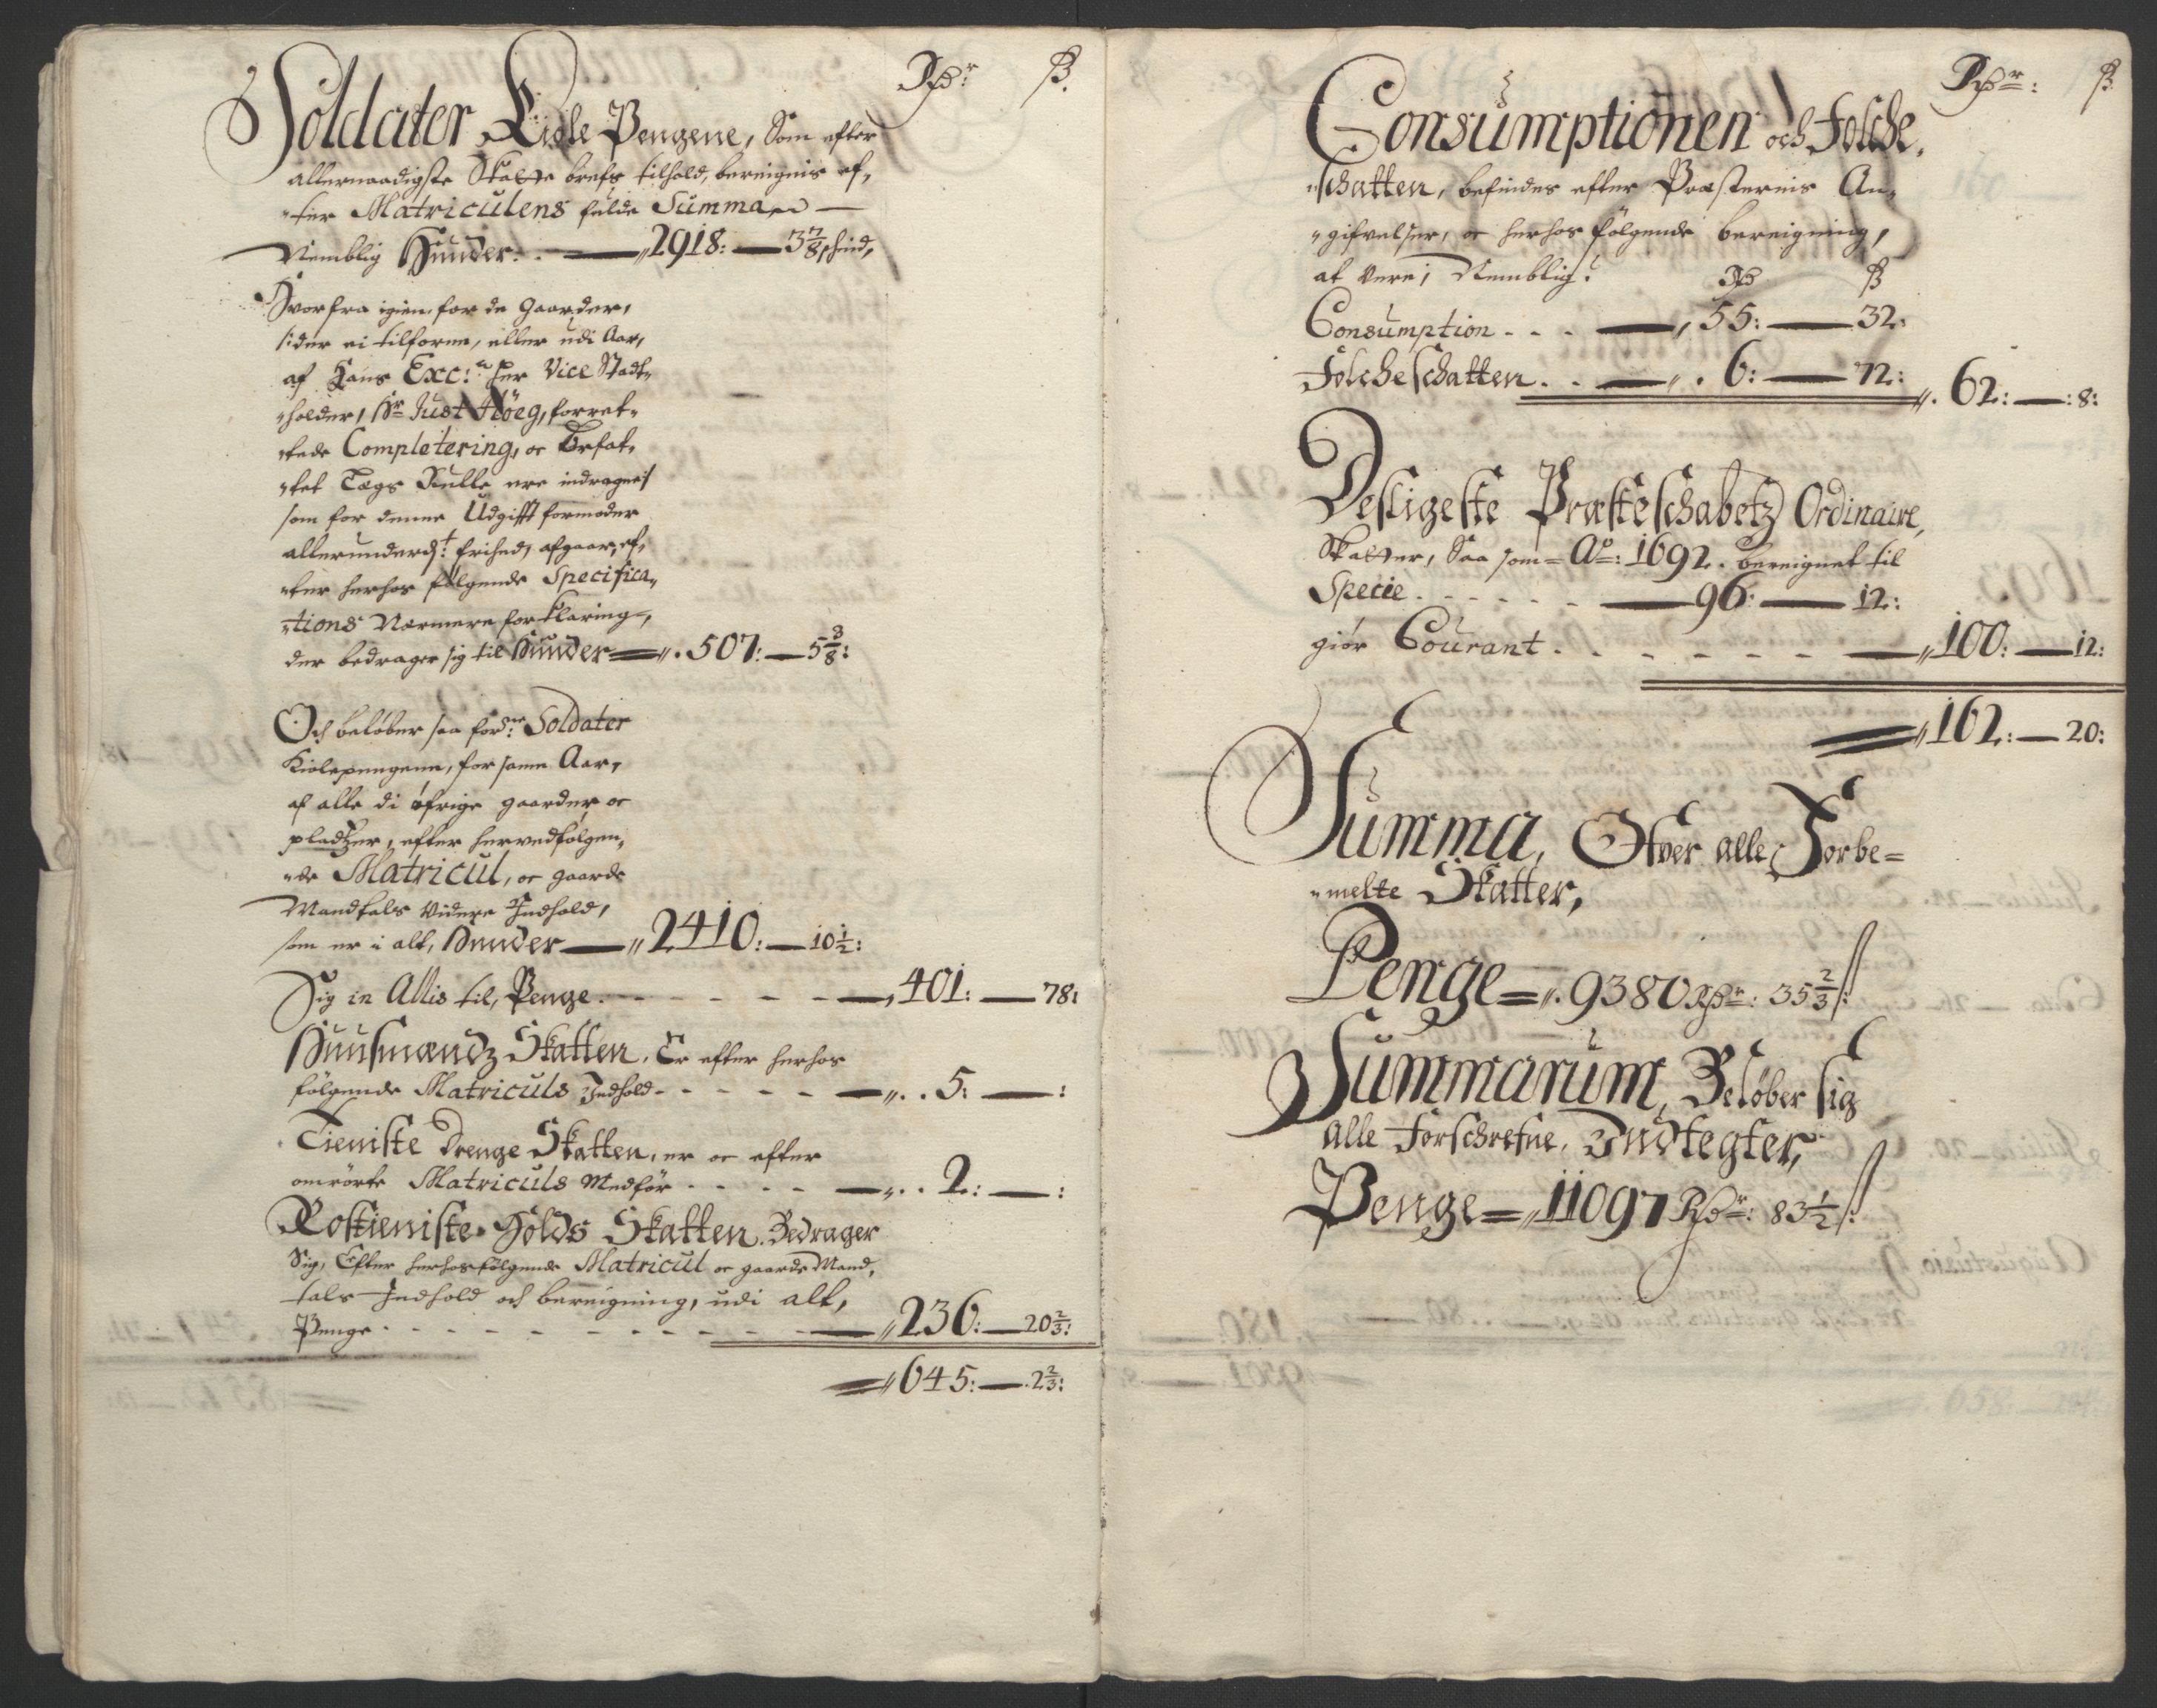 Rdr: ß.
Soldater Kiole Pengene, Som efter
allernaadigste Skatte brefs tilhold, bereignis ef„
„ter Matriculens fulde Summa
Nemblig Hunder: „2918: — 3 7/8 shind,
Hvorfra igien for de Gaarder,
sider ei tilforne, eller udi Aar,
af Hans Exc: Her Vice Stadt„
„holder, Hr Just Höeg, forret„
„tede Completering, oc Forfat„
„tet Lægs Rulle ere indragne,
som for denne Udgifft formoder
allerunderd:t frihed, afgaar, ef„
„ter herhos fölgende Specifica„
„tions Nærmere forklaring,
der bedrager sig til Hunder „. 507: — 5 3/8:
Och belöber saa ford:ne Soldater
Kiolepengene, for samme Aar,
af alle di öfrige gaarder, oc
pladtzer, efter hervedfölgen„
„de Matricul, oc gaarde
Mandtals Videre Indhold,
som er i alt, Hunder — „2410: — 10 1/2:
Sig in Allis til, Penge. — „401: — 78:
Huusmændz Skatten, Er efter herhos
fölgende Matriculs Indhold - — „. . 5: — :
Tieniste Drenge Skatten, er oc efter
omrörte Matriculs Medför - — „. . 2: — :
Rostieniste Holds Skatten. Bedrager
Sig, Efter herhosfölgende Matricul oc gaarde Mand„
tals Indhold och bereigning, udi alt,
Penge - — „236: — 20 2/3:
„645: — 2 2/3:
Rdr: ß
Consumptionen och Folche„
„schatten, befindes efter Præsternis An„
„gifvelser, oc herhos fölgende bereigning,
at Vere, Nemblig: Rd ß
Consumption - - - — „55: — 32:
Folcheschatten. . — „. 6: — 72: „. 62: — : 8:
Desligeste Præsteschabetz Ordinaire,
Skatter, Saa som = Ao: 1692. bereignet til
Specie - — 96: — 12:
giör Courant. — „100: — 12:
„162: — 20:
Summa, Ofver alle Forbe=
„melte Skatter,
Penge = „. 9380 Rdr: 35 2/3 ß:
Summarum, Belöber sig
alle Forschrefne, Indtegter,
Penge = „11097 Rdr: 83 1/2 ß: